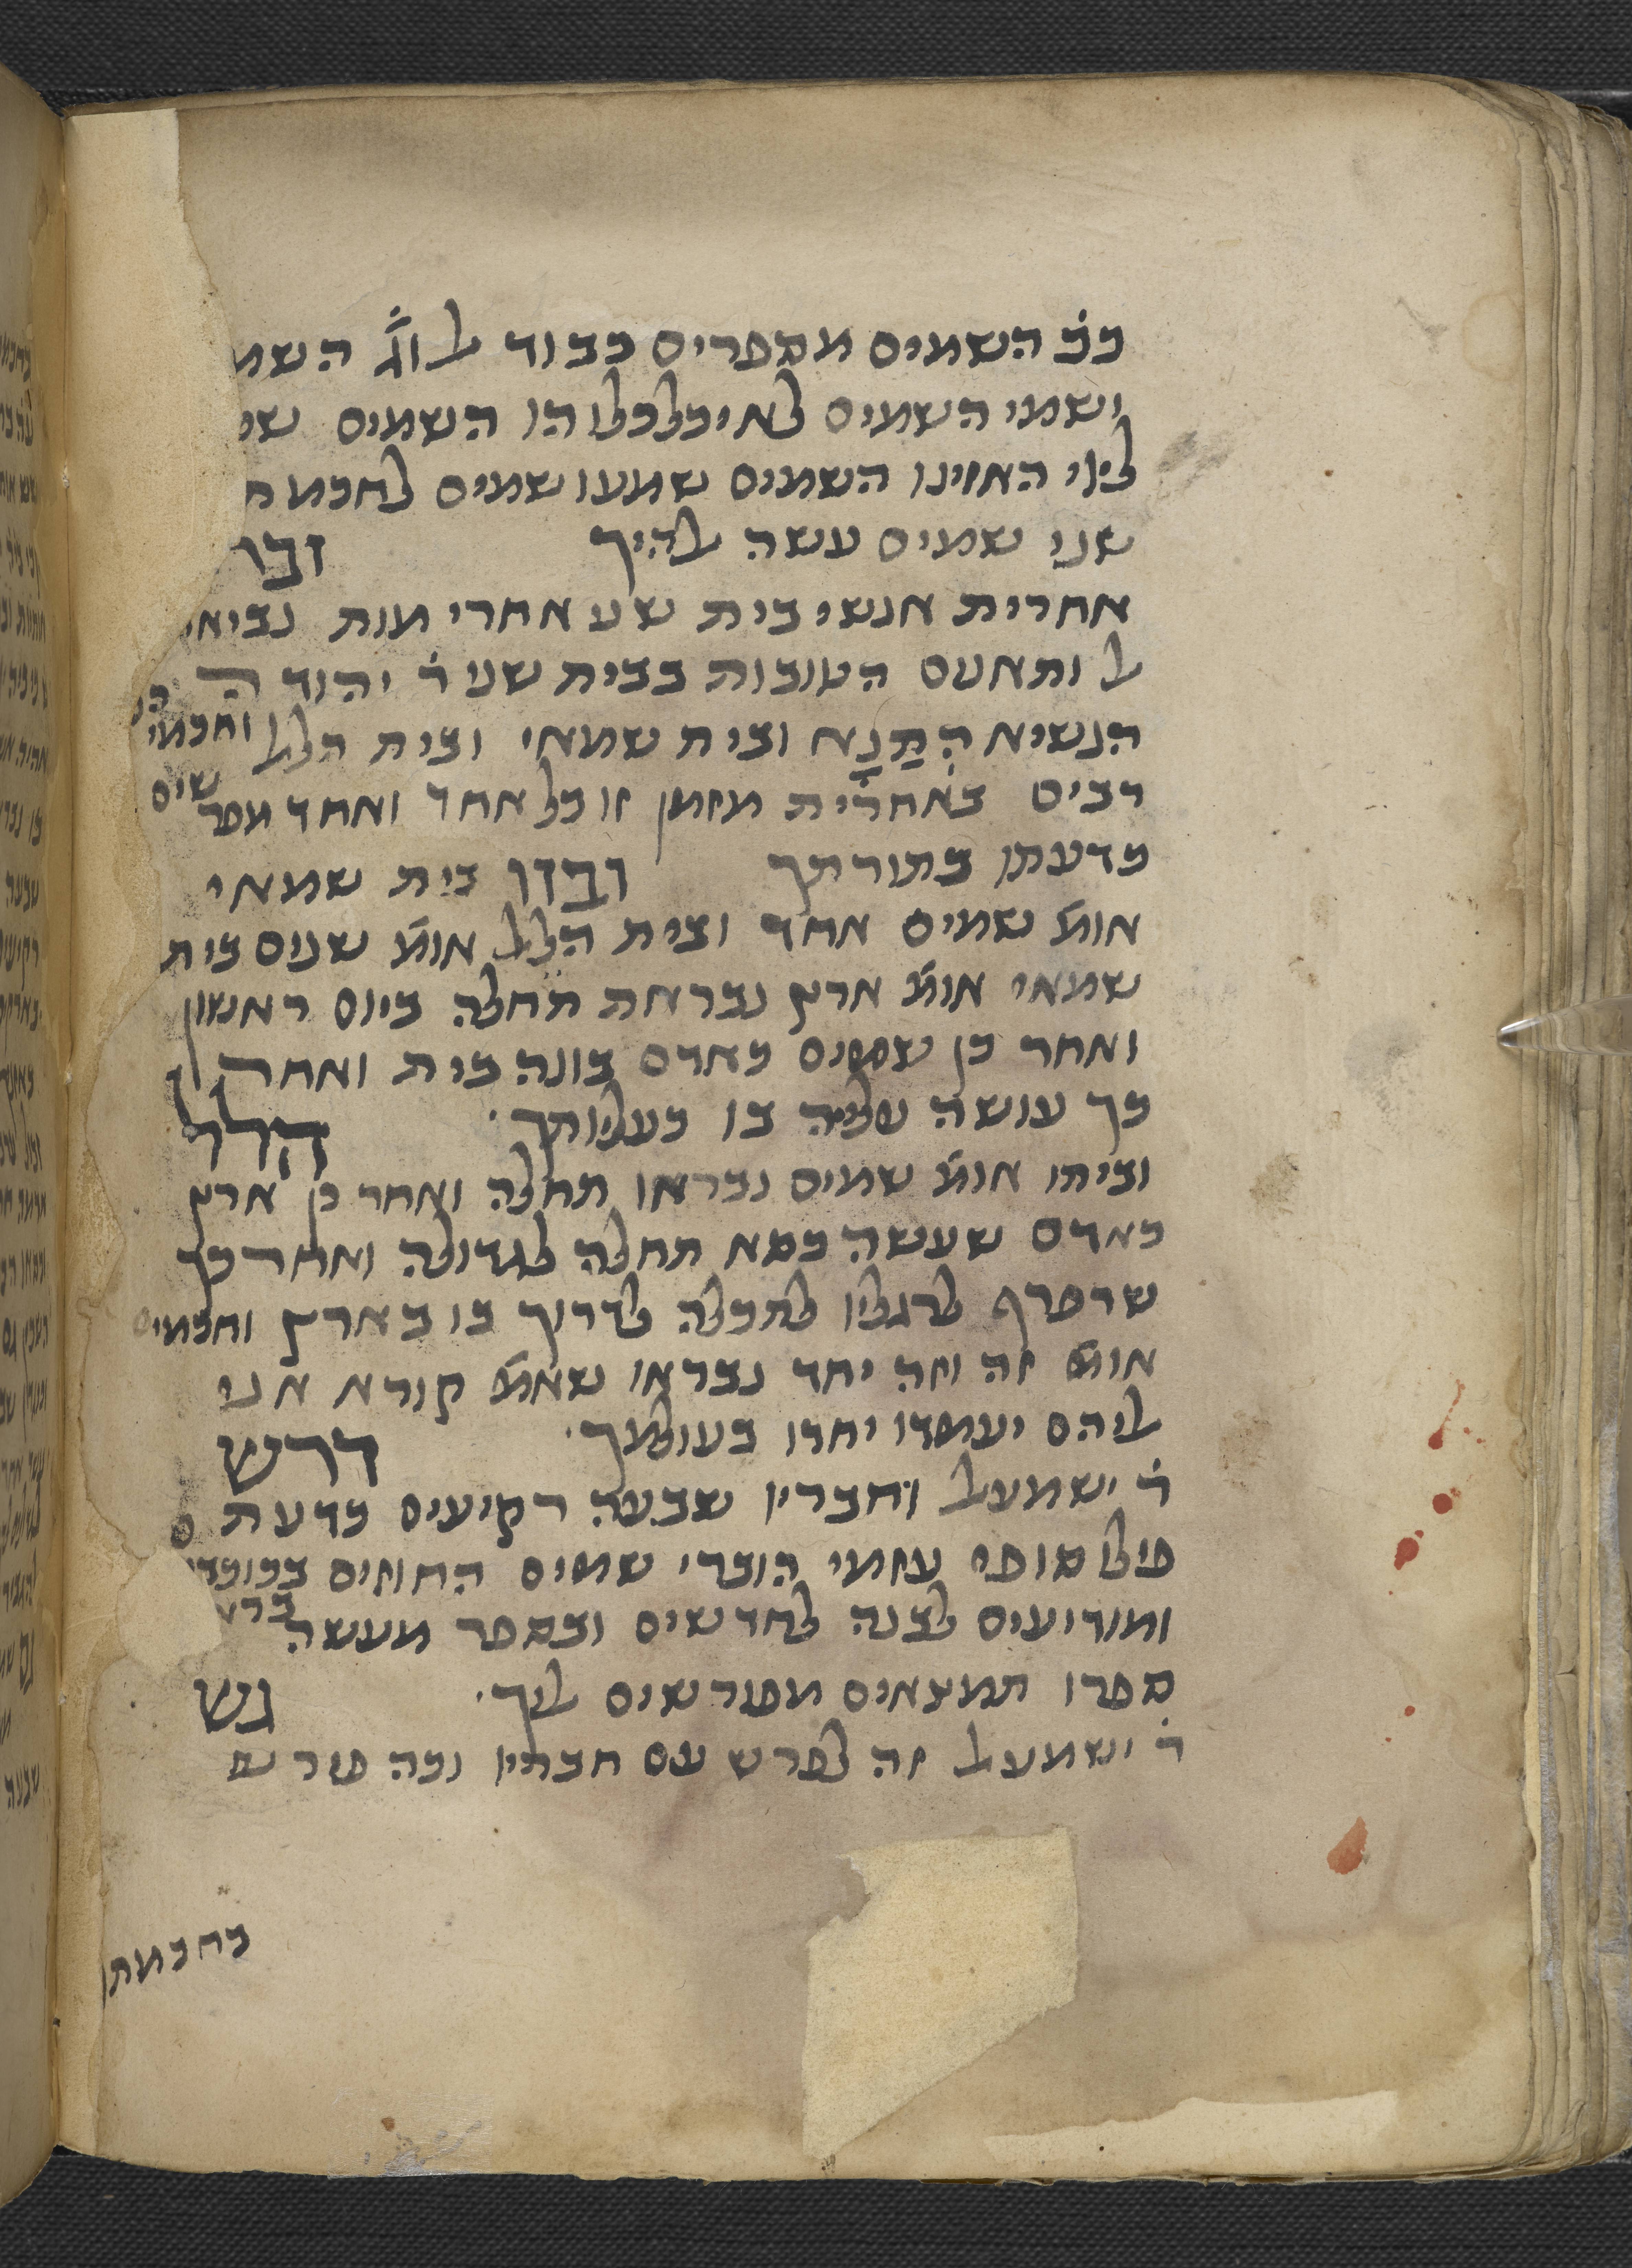 ככ׳ השמים מספרים כבוד אל וג׳ השמ
ושמי השמים לא יכלכלוהו השמים שמ
ליי׳ האזינו השמים שמעו שמים לחכמת
שני שמים עשה אלהיך וכו
אחרית אנשי בית שני אחרי מות נביאי
אל ותאנים הטובות בבית שני ר׳ יהודה
הנשיא התַנָא ובית שמאי ובית הלל וחכמי
רבים באחרית מזמן זו כל אחד ואחד מפרשים
כדעתו בתורתך ובדו בית שמאי
אומ׳ שמים אחד ובית הלל אומ׳ שנים בית
שמאי אומ׳ ארץ נבראת תחלה ביום ראשון
ואחר כן שמים כאדם בונה בית ואחר
כך עושה עליה בו כעליותך הלל
וביתו אומ׳ שמים נבראו תחלה ואחר כן ארץ
כאדם שעשה כסא תחלה לגדולה ואחר כך
שרפרף לרגליו לתכלה לדרוך בו בארץ וחכמים
אומ׳ זה וזה יחד נבראו שאמ׳ קורא אני
אליהם יעמדו יחדו בעולמך דרש
ר׳ ישמעאל וחבריו שבעה רקיעים כדעת
פילוסופי עזמי הוברי שמים החוזים בכוכבי
ומודיעים לבנה לחדשים ובספר מעשה ברא
ספרו תמצאים מפורשים אליך גש
ר׳ ישמעאל זה לפרש עם חבריו וכה פורש
בחכמתו